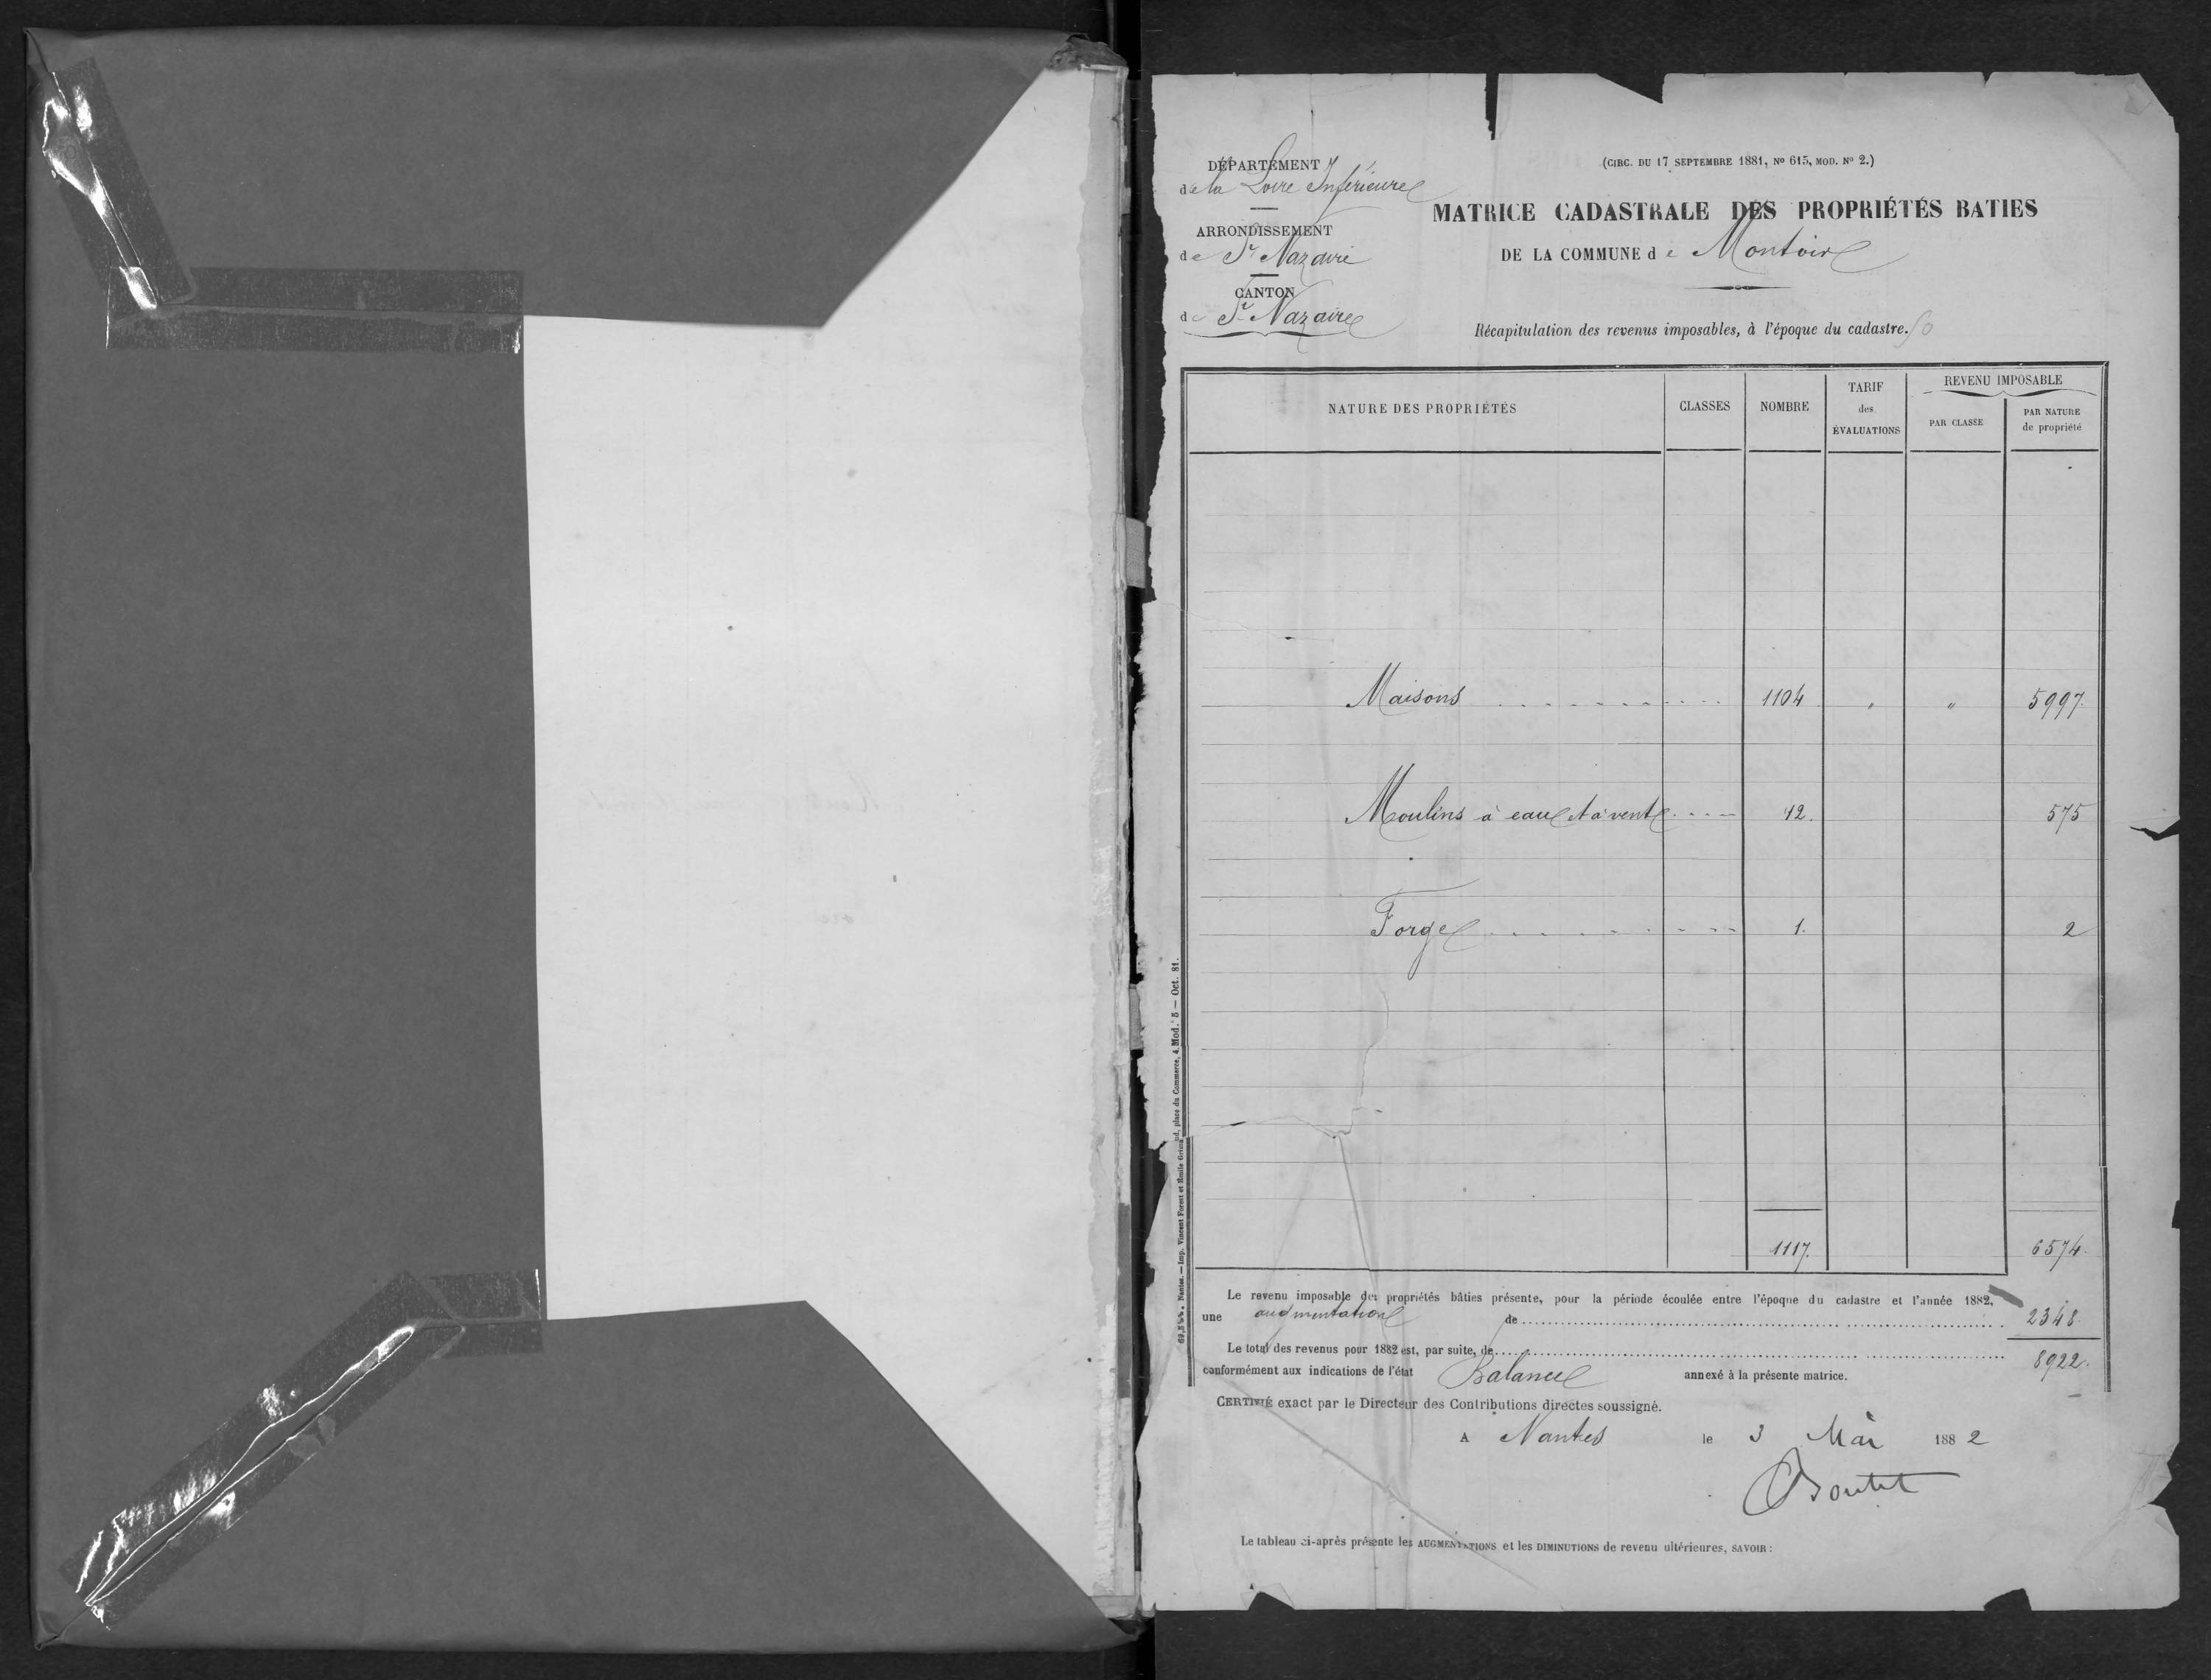 DÉPARTEMENT
de la Loire Inférieure
ARRONDISSEMENT
de St Nazaire
CANTON
de St Nazaire
(CIRC. DU 17 SEPTEMBRE 1881, No 615, MOD. No 2.)
MATRICE CADASTRALE DES PROPRIÉTÉS BATIES
DE LA COMMUNE de Montoire
Récapitulation des revenus imposables, à l'époque du cadastre.
NATURE DES PROPRIÉTÉS CLASSES NOMBRE TARIF des ÉVALUATIONS REVENU IMPOSABLE PAR CLASSE PAR NATURE de propriété
Maisons 1104 " " 5997.
Moulins à eau et à vent 12. 575
Forge 1. 2
1117. 6574.
Le revenu imposable des propriétés bâties présente, pour la période écoulée entre l'époque du cadastre et l'année 1882,
une augmentation de 2348.
Le total des revenus pour 1882 est, par suite, de 8922.
conformément aux indications de l'état Balance annexé à la présente matrice.
CERTIFIÉ exact par le Directeur des Contributions directes soussigné.
A Nantes le 3 Mai 1882
Boutet
Le tableau ci-après présente les AUGMENTATIONS et les DIMINUTIONS de revenu ultérieures, SAVOIR :
Nantes. — Imp. Vincent Forest et Emile Grimaud, place du Commerce, 4. Mod. 5 — Oct. 81.